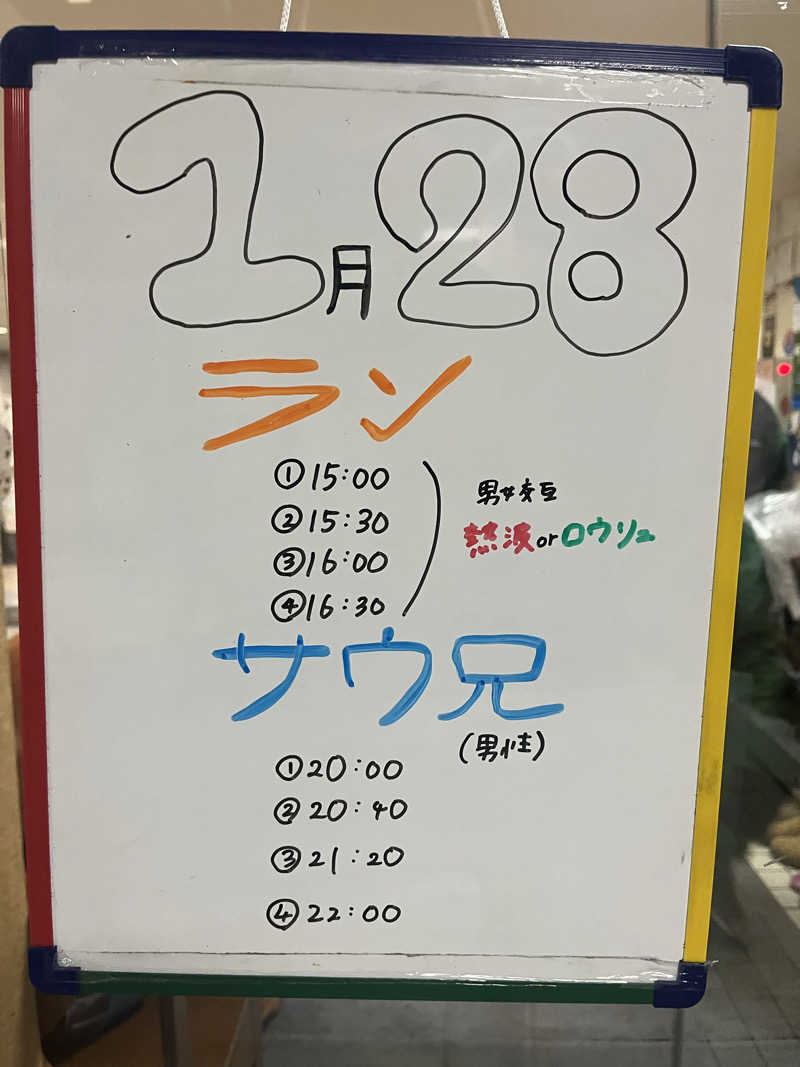 1月28
ラン
①15:00
②15:30
③16:00
④16:30
男女交互
熱波orロウリュ
サウ兄
(男性)
①20:00
②20:40
③21:20
④22:00